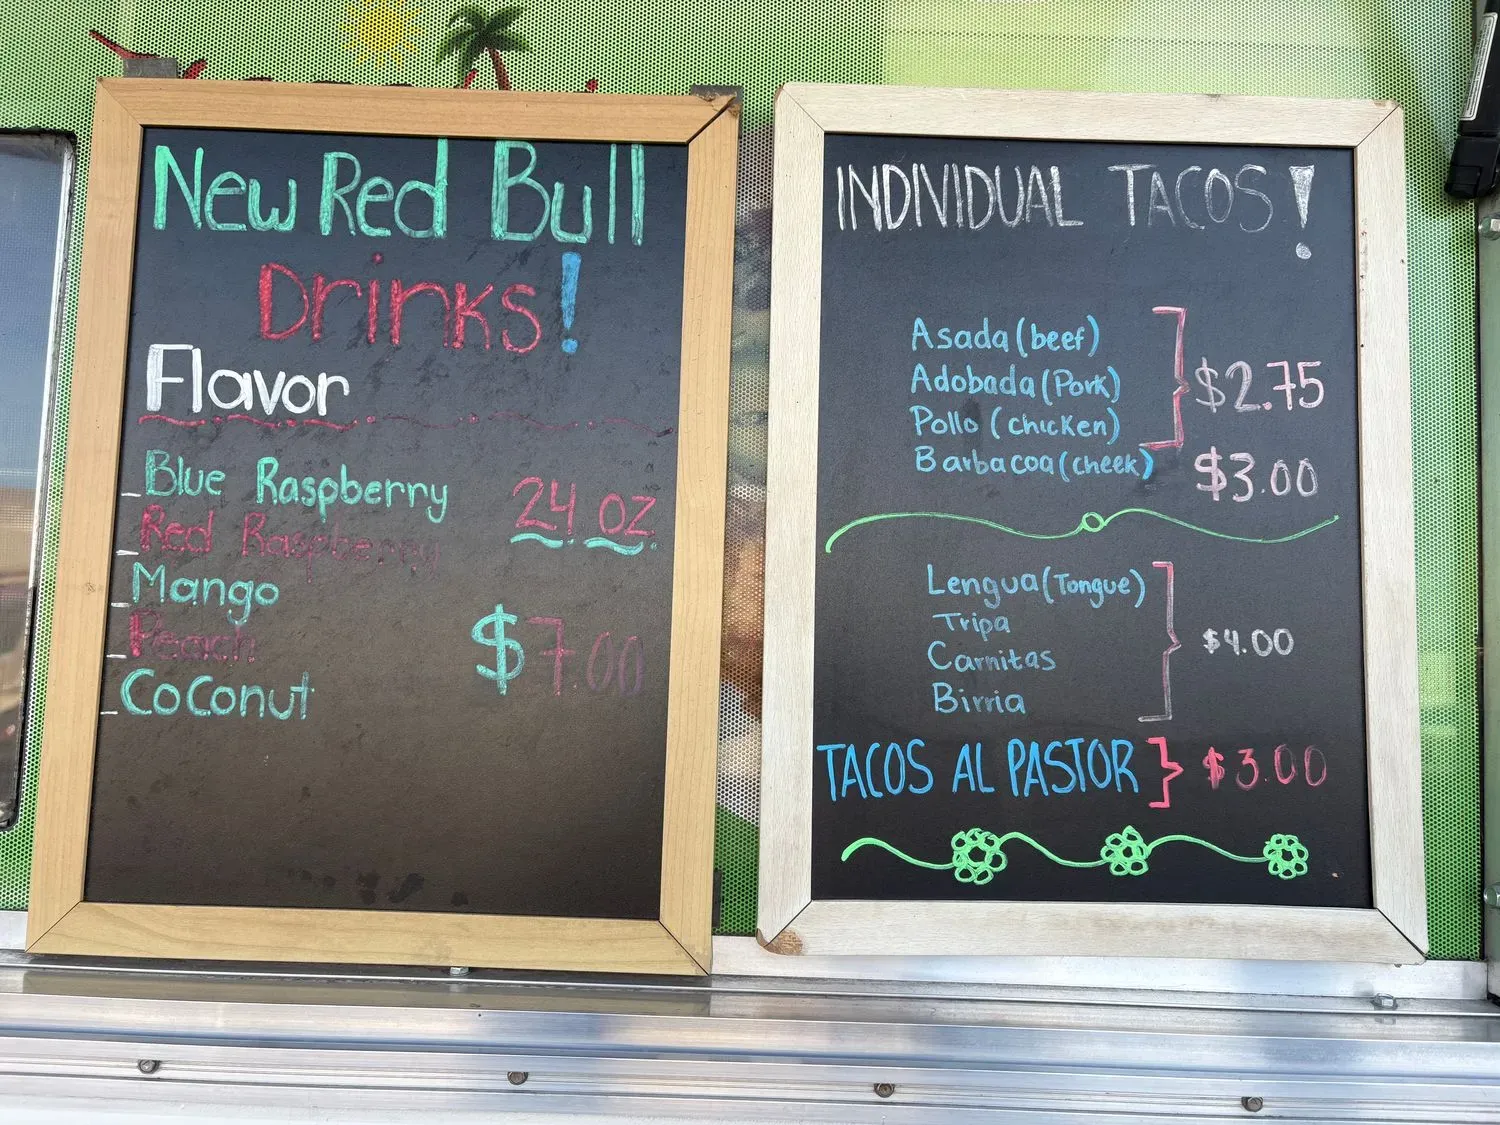 New Red Bull
Drinks!
Flavor
_Blue Raspberry
_Red Raspberry
_Mango
_Peach
_Coconut
24 oz.
$7.00
INDIVIDUAL TACOS!
Asada (beef)
Adobada (Pork)
Pollo (chicken)
$2.75
Barbacoa (cheek) $3.00
Lengua (Tongue)
Tripa
Carnitas
Birria
$4.00
TACOS AL PASTOR } $3.00